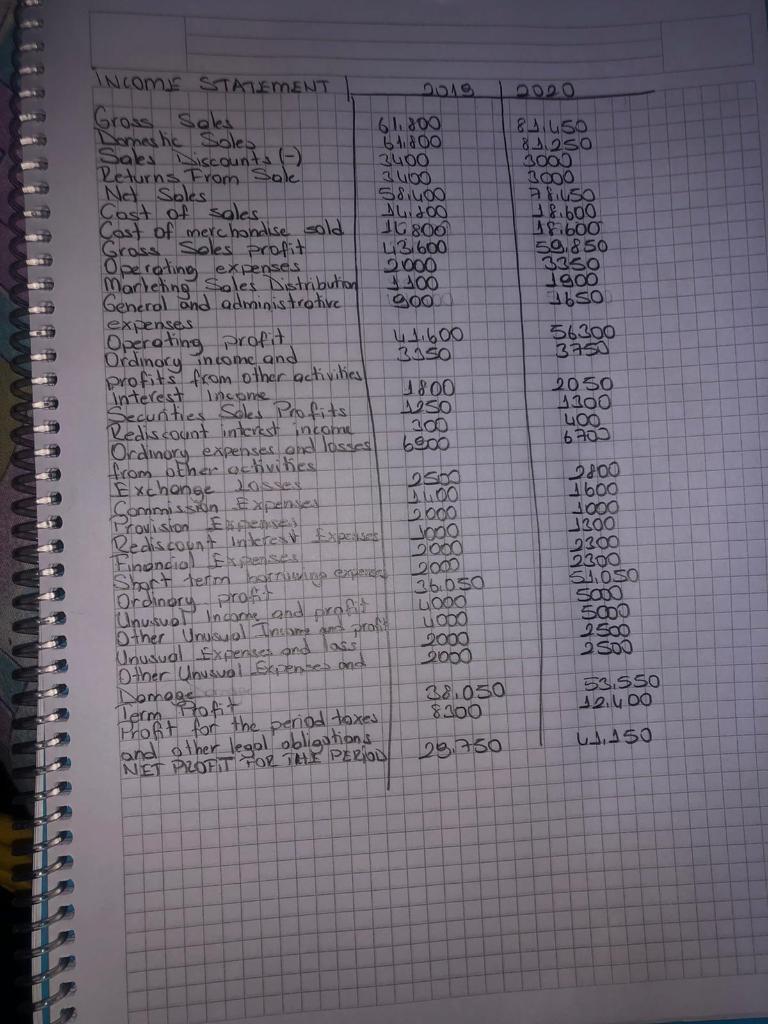 INCOME STATEMENT 2019 2020
Gross Sales 61.800 81.450
Domestic Sales 61.800 81.250
Sales Discounts (-) 3400 3000
Returns From Sale 3400 3000
Net Sales 58.400 78.450
Cost of sales 14.800 18.600
Cost of merchandise sold 14800 18.600
Gross Sales profit 43.600 59.850
Operating expenses 2000 3350
Marketing Sales Distribution 1100 1900
General and administrative 900 1650
expenses
Operating profit 41.600 56300
Ordinary income and 3350 3750
profits from other activities
Interest Income 1800 2050
Securities Sales Profits 1250 1300
Rediscount interest income 300 400
Ordinary expenses and losses 6900 6700
from other activities
Exchange Losses 2500 2800
Commission Expenses 1400 1600
Provision Expenses 2000 1000
Rediscount Interest Expenses 1000 1300
Financial Expenses 2000 2300
Short term borriwing expenses 2000 2300
Ordinary profit 36.050 51.050
Unusual Income and profit 4000 5000
Other Unusual Income and profit 4000 5000
Unusual Expenses and lass 2000 2500
Other Unusual Expenses and 2000 2500
Damage
Term Profit 38.050 53.550
Profit for the period taxes 8300 12.400
and other legal obligations
NET PROFIT FOR THE PERIOD 29.750 41.150